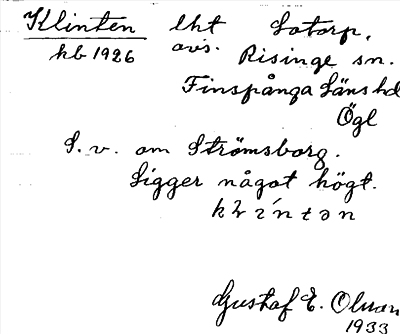 Klinten lht Latorp,
kb 1926 avs. Risinge sn.
Finspånga Läns hd
Ögl
S. v. om Strömsborg.
Ligger något högt.
Gustaf E. Olsson
1933